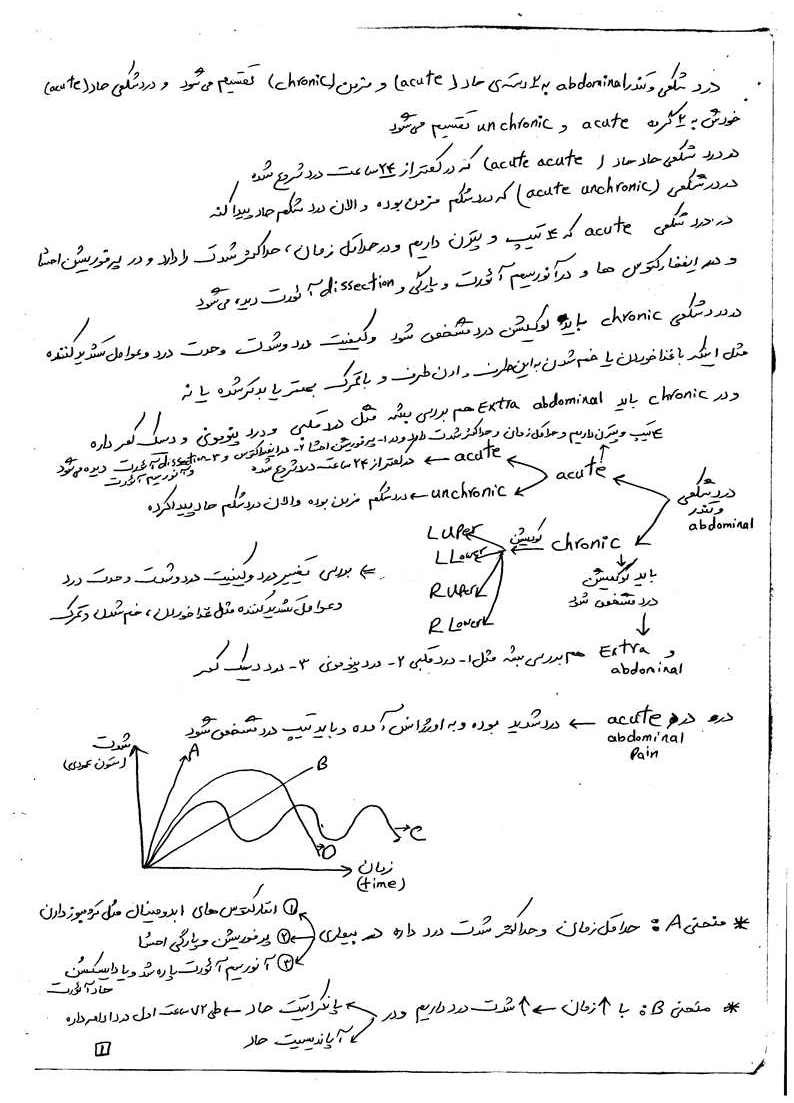 درد شکمی و تندر abdominal به ۲ دسته‌ی حاد (acute) و مزمن (chronic) تقسیم می‌شود و درد شکمی حاد (acute)
خودش به ۲ گروه acute و unchronic تقسیم می‌شود
در درد شکمی حاد حاد (acute acute) که در کمتر از ۲۴ ساعت درد شروع شده
در درد شکمی (acute unchronic) که درد شکم مزمن بوده و الان درد شکم حاد پیدا کنه
در درد شکمی acute که ۴ تیپ و پترن داریم و در حداقل زمان، حداکثر شدت را دارد و در پرفوریشن احشا
و در اینفارکتوس ها و در آنوریسم آئورت و پارگی و dissection آئورت دیده می‌شود
در درد شکمی chronic باید لوکیشن درد مشخص شود و کیفیت درد و شدت و حدت درد و عوامل تشدید کننده
مثل اینکه با غذا خوردن یا خم شدن به این طرف و اون طرف و با تحرک بهتر یا بدتر شده یا نه
و در chronic باید Extra abdominal هم بررسی بشه مثل درد قلبی و درد پنومونی و دیسک کمر داره
۴ تیپ و پترن داریم و حداقل زمان و حداکثر شدت دارد و در ۱- پرفوریشن احشا ۲- در اینفارکتوس و ۳- dissection آئورت دیده می‌شود
و آنوریسم آئورت
acute ← در کمتر از ۲۴ ساعت درد شروع شده
acute
unchronic ← درد شکم مزمن بوده و الان درد شکم حاد پیدا کرده
درد شکمی
و تندر
abdominal
chronic
لوکیشن
L Uper
L Lower
R Uper
R Lower
باید لوکیشن
درد مشخص شود
⇐ بررسی تغییر درد و کیفیت درد و شدت و حدت درد
و عوامل تشدید کننده مثل غذا خوردن، خم شدن و تحرک
و Extra abdominal هم بررسی بشه مثل ۱- درد قلبی ۲- درد پنومونی ۳- درد دیسک کمر
در درد acute abdominal Pain ← درد شدید بوده و به اورژانس آمده و باید تیپ درد مشخص شود
شدت
(ستون عمودی)
A
B
C
D
زمان
(time)
* منحنی A: حداقل زمان و حداکثر شدت درد داره در بیماری
① انفارکتوس های ابدومینال مثل ترومبوز دارن
② پرفوریشن و پارگی احشا
③ آنوریسم آئورت پاره شد و یا دایسکشن
حاد آئورت
* منحنی B: با ↑ زمان ← ↑ شدت درد داریم و در
پانکراتیت حاد ← طی ۷۲ ساعت اول درد ادامه داره
آپاندیسیت حاد
۱